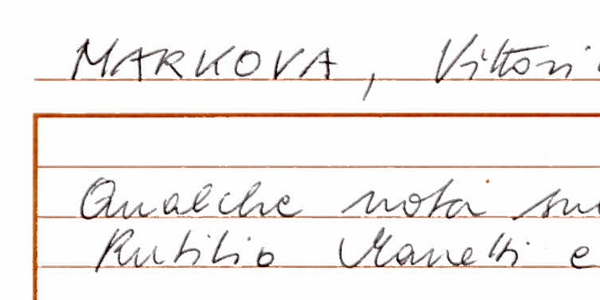 MARKOVA, Vittori
Qualche nota su
Rutilio Manetti e